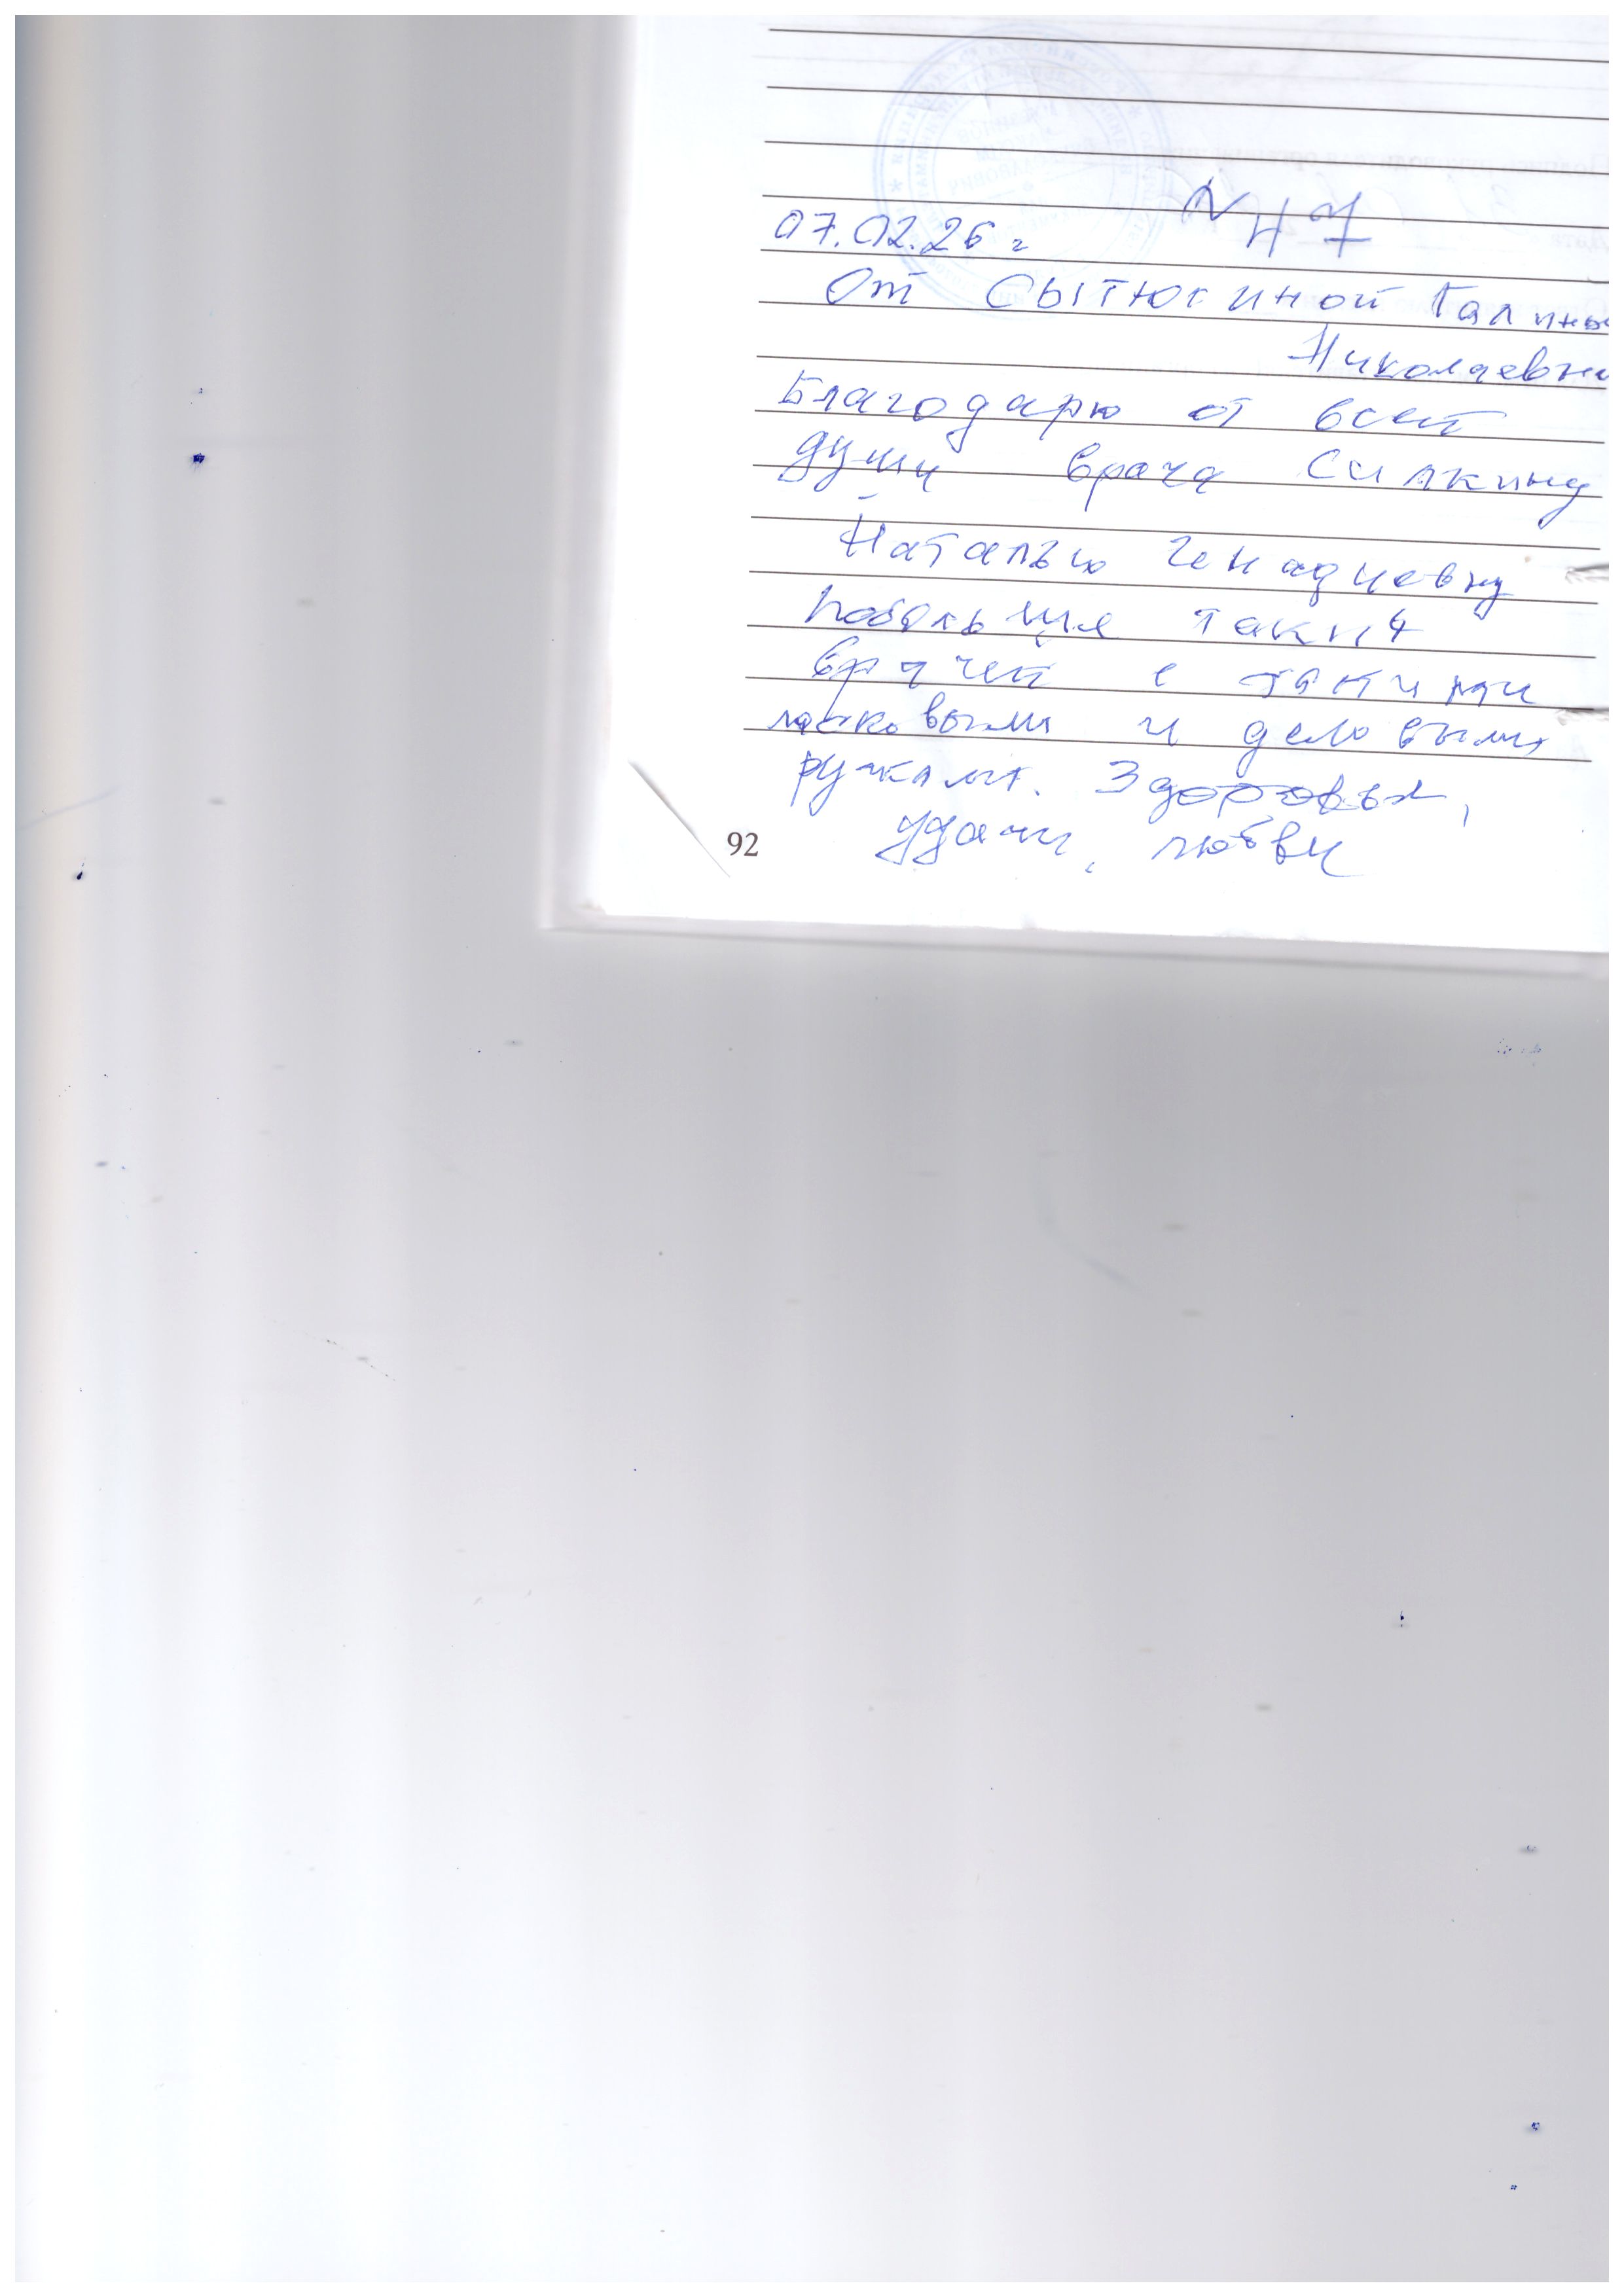 N 47
07.02.26 г
От Сытюгиной Галины
Николаевны
Благодарю от всей
души врача Силкину
Наталью Генадиевну
Побольше таких
врачей с такими
ласковыми и деловыми
ручками. Здоровья,
удачи, любви
92